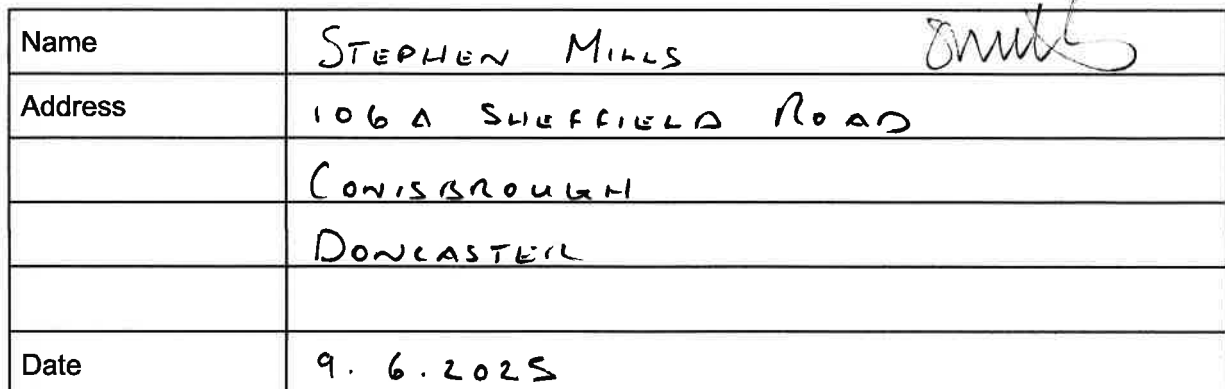 Name STEPHEN MILLS
Address 106A SHEFFIELD ROAD
CONISBROUGH
DONCASTER
Date 9.6.2025